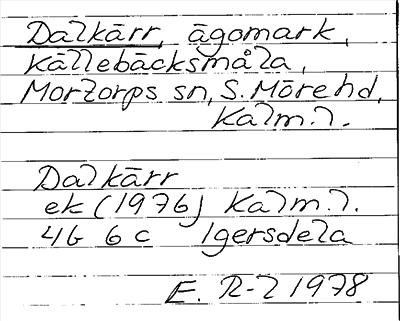 Dalkärr, ägomark,
Källebäcksmåla,
Mortorps sn, S. Möre hd,
Kalm. l.
Dalkärr
ek (1976) Kalm. l.
4G 6c Igersdela
E. R-l 1978